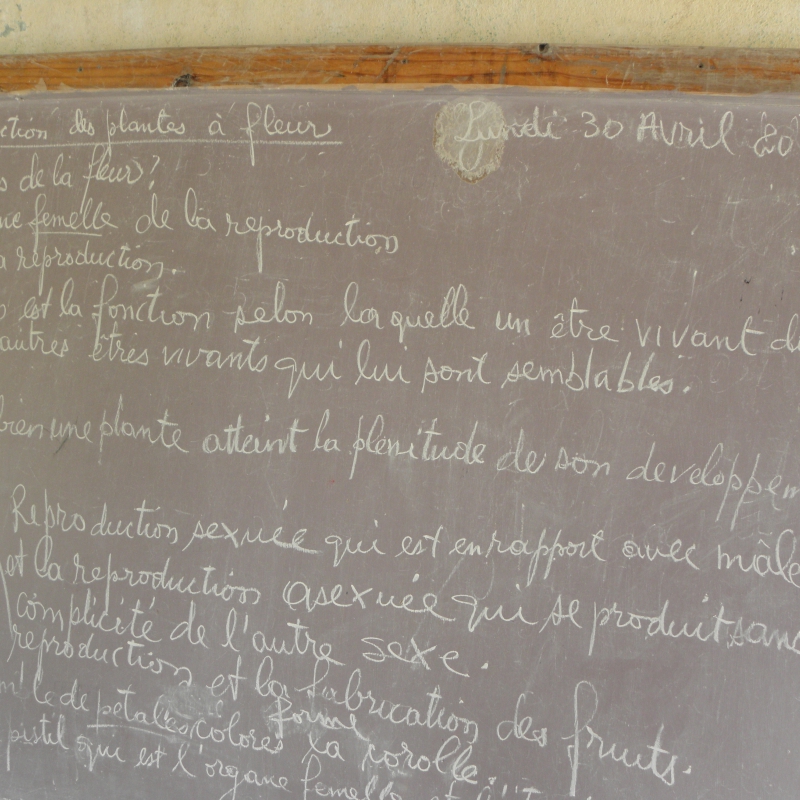 ction des plantes à fleur
Lundi 30 Avril 20
s de la fleur?
ne femelle de la reproduction
a reproduction.
s est la fonction selon laquelle un être vivant d
autres êtres vivants qui lui sont semblables.
bien une plante atteint la plenitude de son developpem
Reproduction sexuée qui est en rapport avec mâle
et la reproduction asexuée qui se produit sans
complicité de l'autre sexe.
reproduction et la fabrication des fruits.
le de petales colorés forme la corolle.
pistil qui est l'organe femelle et